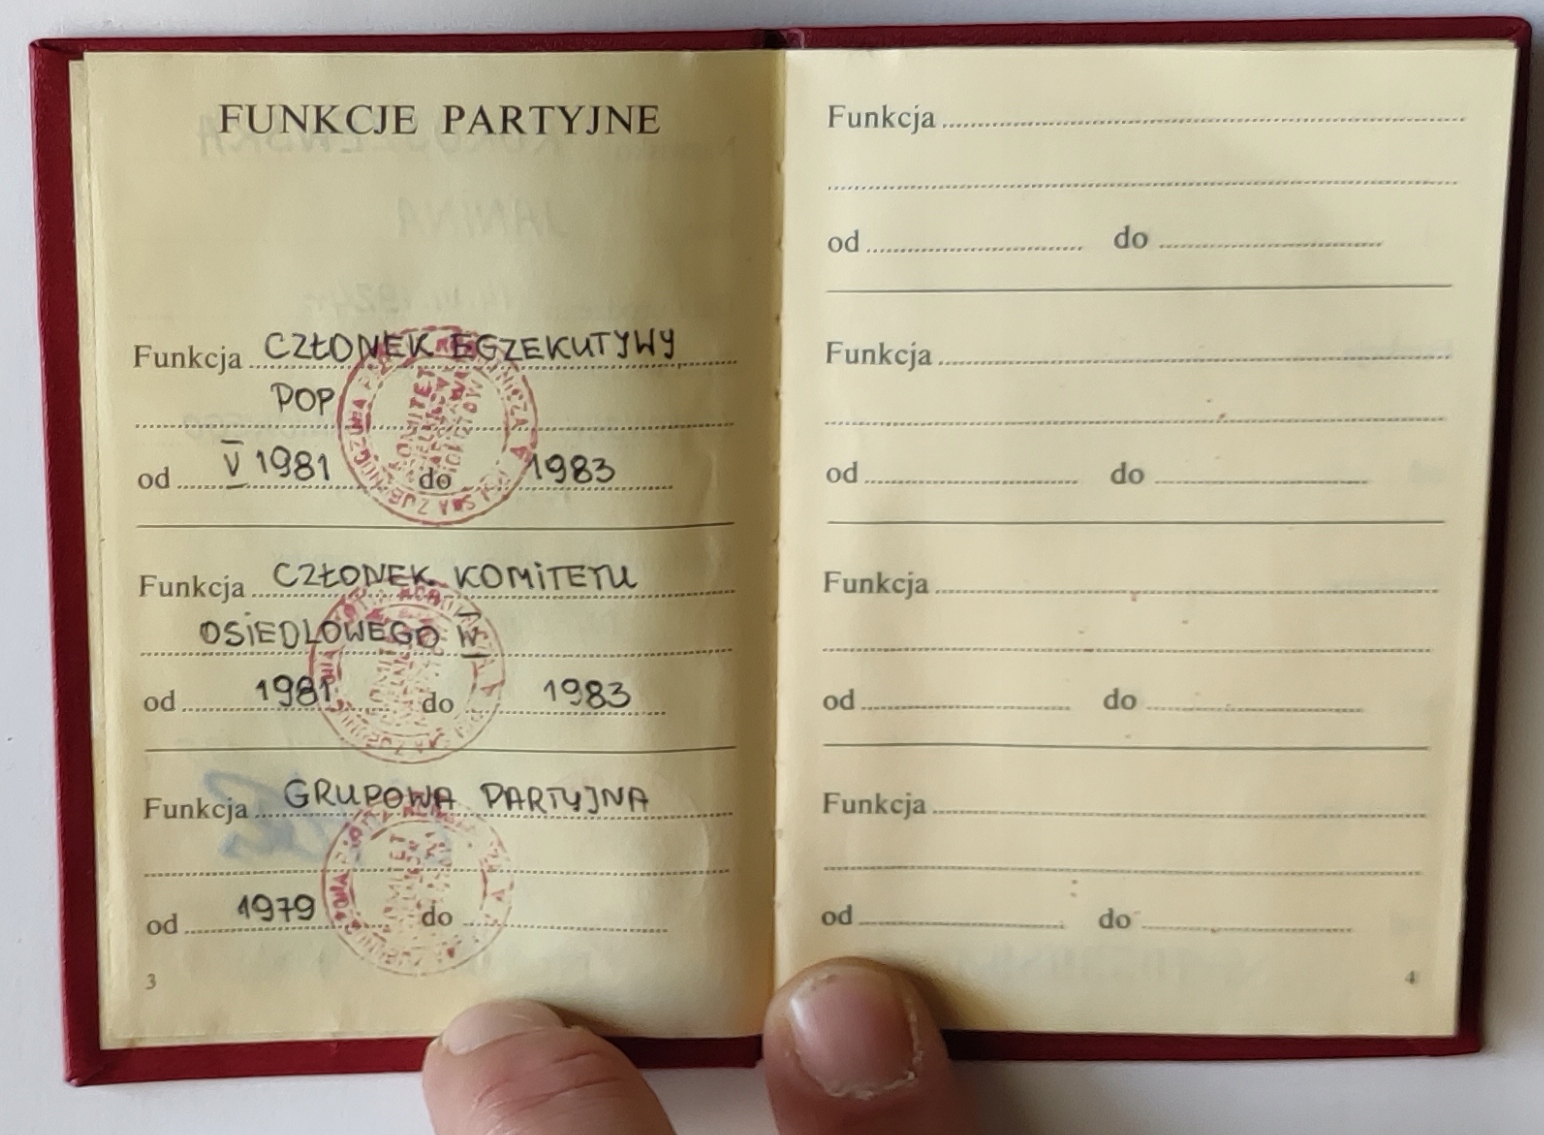 FUNKCJE PARTYJNE
Funkcja CZŁONEK EGZEKUTYWY
POP
od V 1981 do 1983
Funkcja CZŁONEK KOMITETU
OSIEDLOWEGO IV
od 1981 do 1983
Funkcja GRUPOWA PARTYJNA
od 1979 do
3
Funkcja
od do
Funkcja
od do
Funkcja
od do
Funkcja
od do
4